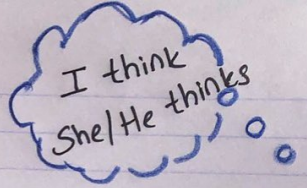 I think
She/He thinks